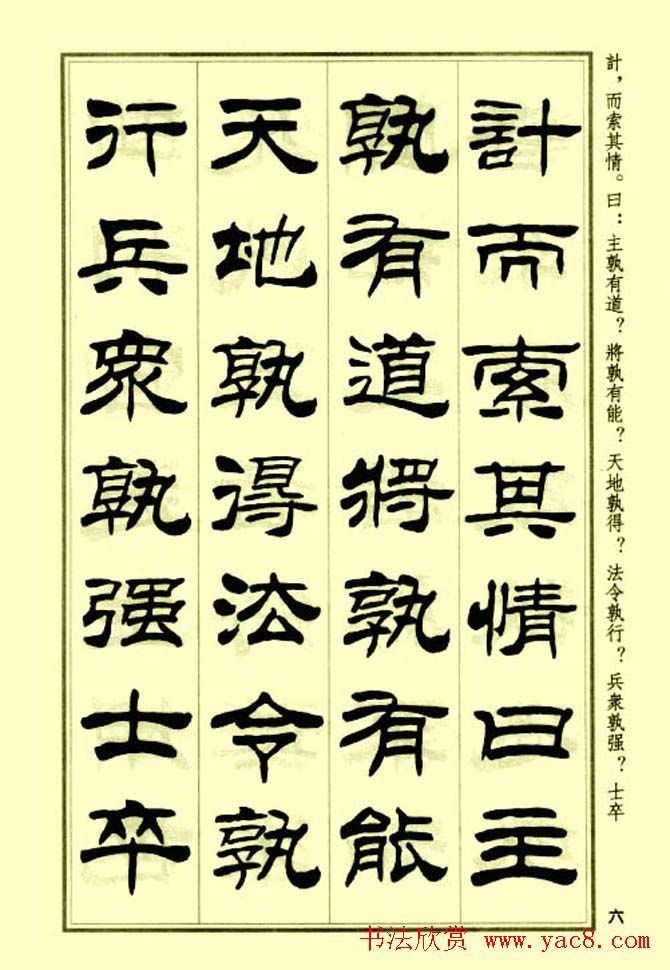 計，而索其情。曰：主孰有道？將孰有能？天地孰得？法令孰行？兵衆孰强？士卒
計而索其情曰主
孰有道將孰有能
天地孰得法令孰
行兵衆孰强士卒
六
书法欣赏 www.yac8.com